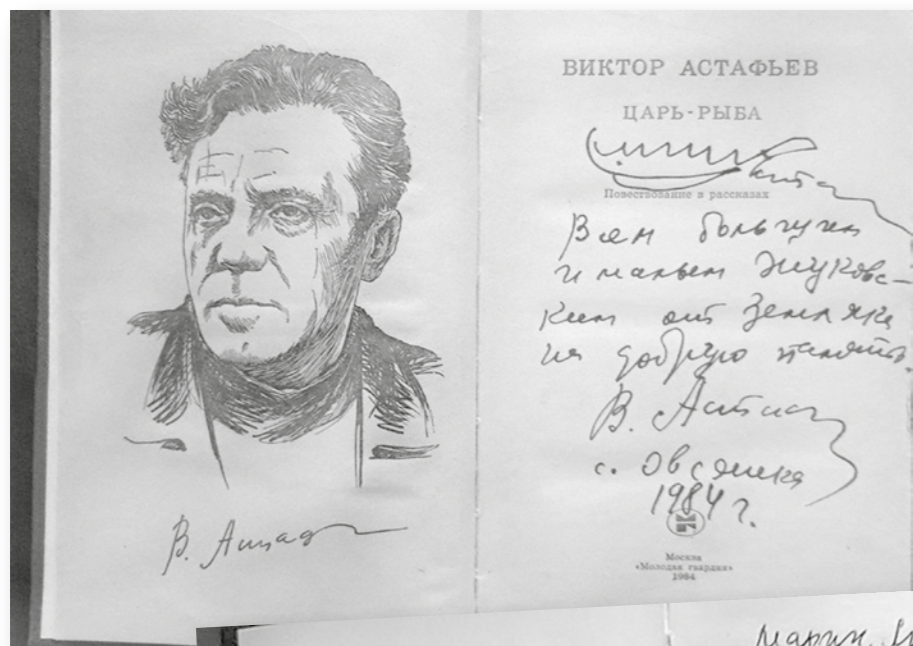 В. Астаф
ВИКТОР АСТАФЬЕВ
ЦАРЬ-РЫБА
Повествование в рассказах
Всем большим
и малым Жуковс-
ким от земляка
на добрую память.
В. Астаф
с. Овсянка
1984 г.
Москва
«Молодая гвардия»
1984
Марии